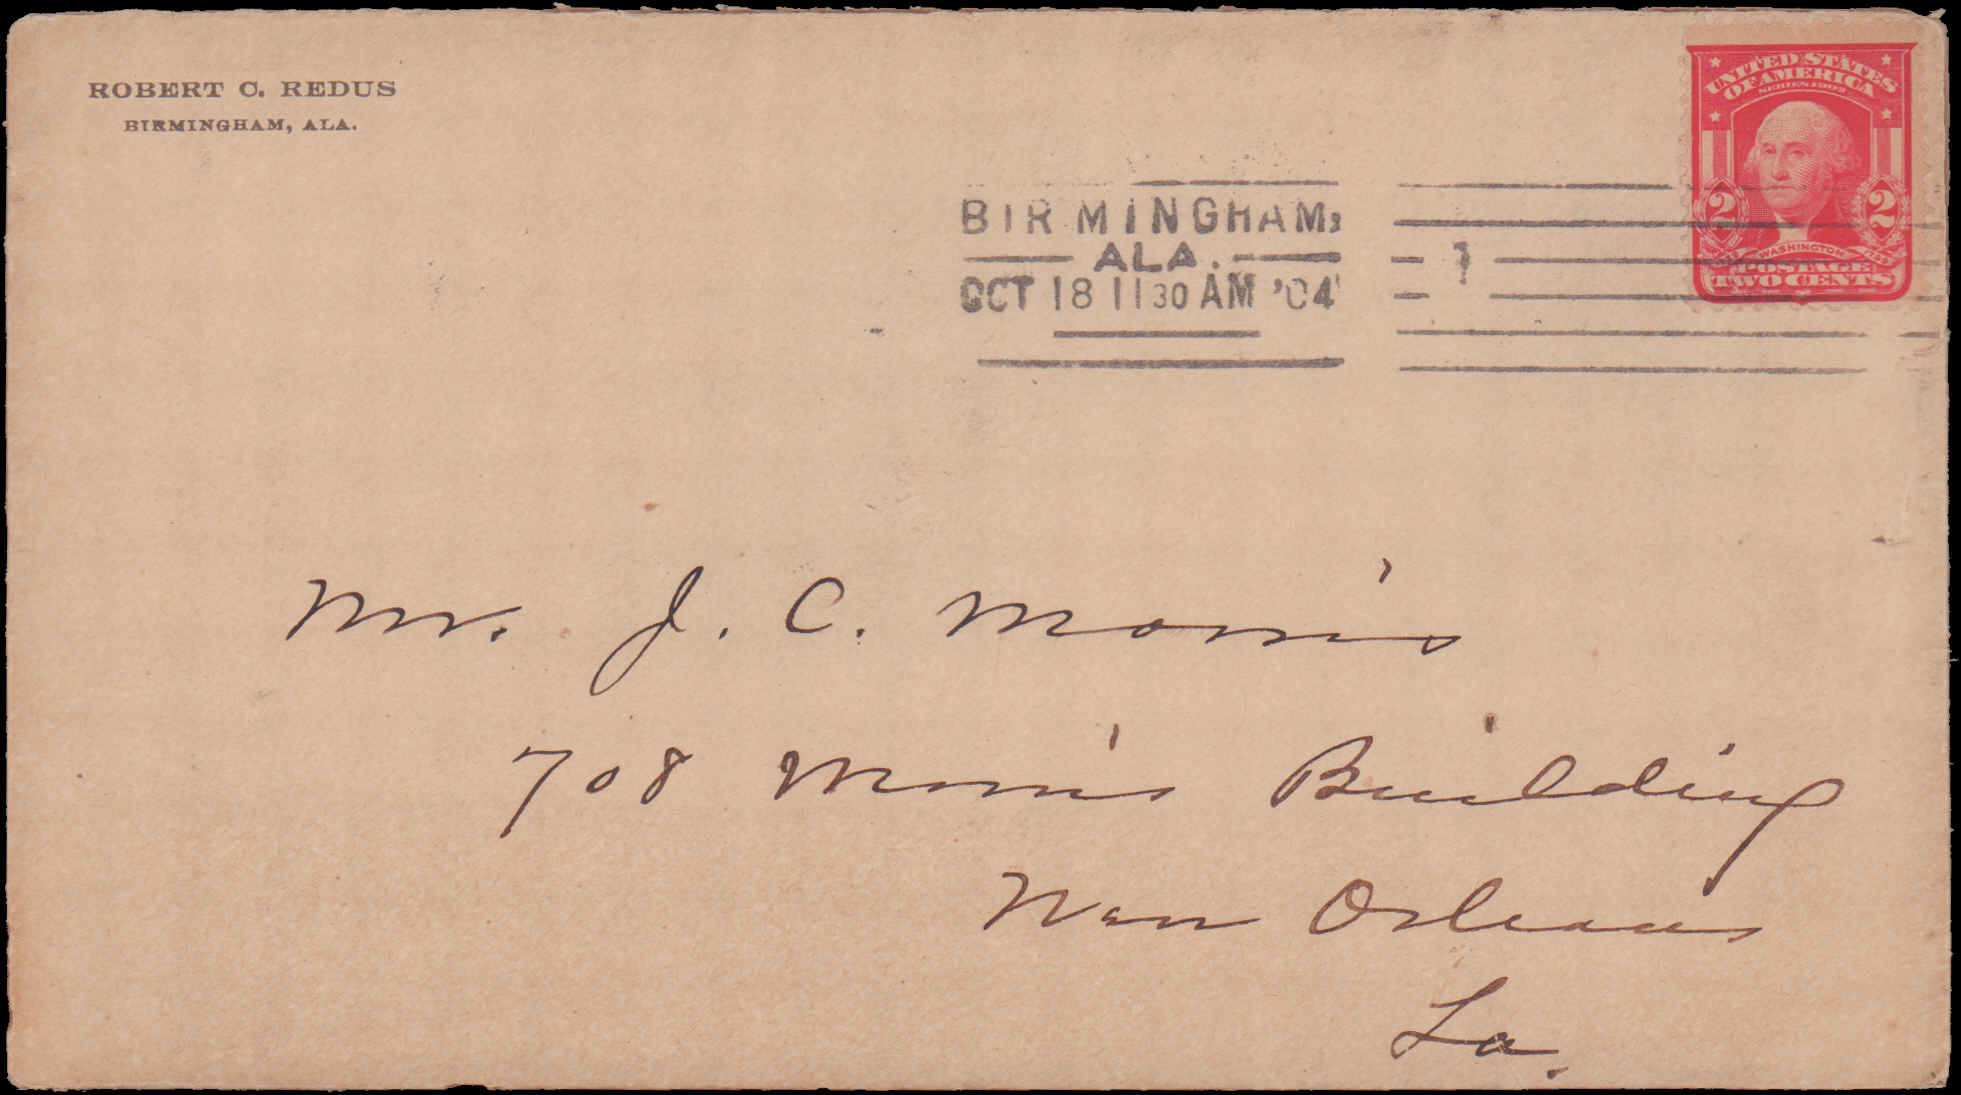 ROBERT C. REDUS
BIRMINGHAM, ALA.
UNITED STATES
OF AMERICA
SERIES 1902
2 2
WASHINGTON
POSTAGE
TWO CENTS
BIRMINGHAM,
ALA.
OCT 18 11 30 AM '04
1
Mr. J. C. Morris
708 Morris Building
New Orleans
La.